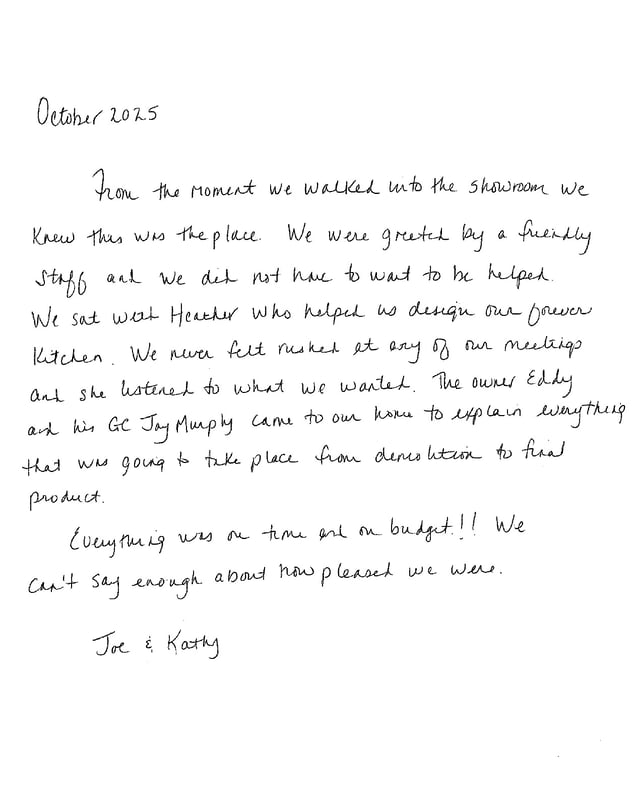 October 2025
From the moment we walked into the showroom we
knew this was the place. We were greeted by a friendly
staff and we did not have to wait to be helped.
We sat with Heather who helped us design our forever
kitchen. We never felt rushed at any of our meetings
and she listened to what we wanted. The owner Eddy
and his GC Jay Murphy came to our home to explain everything
that was going to take place from demolition to final
product.
Everything was on time and on budget!! We
can't say enough about how pleased we were.
Joe & Kathy